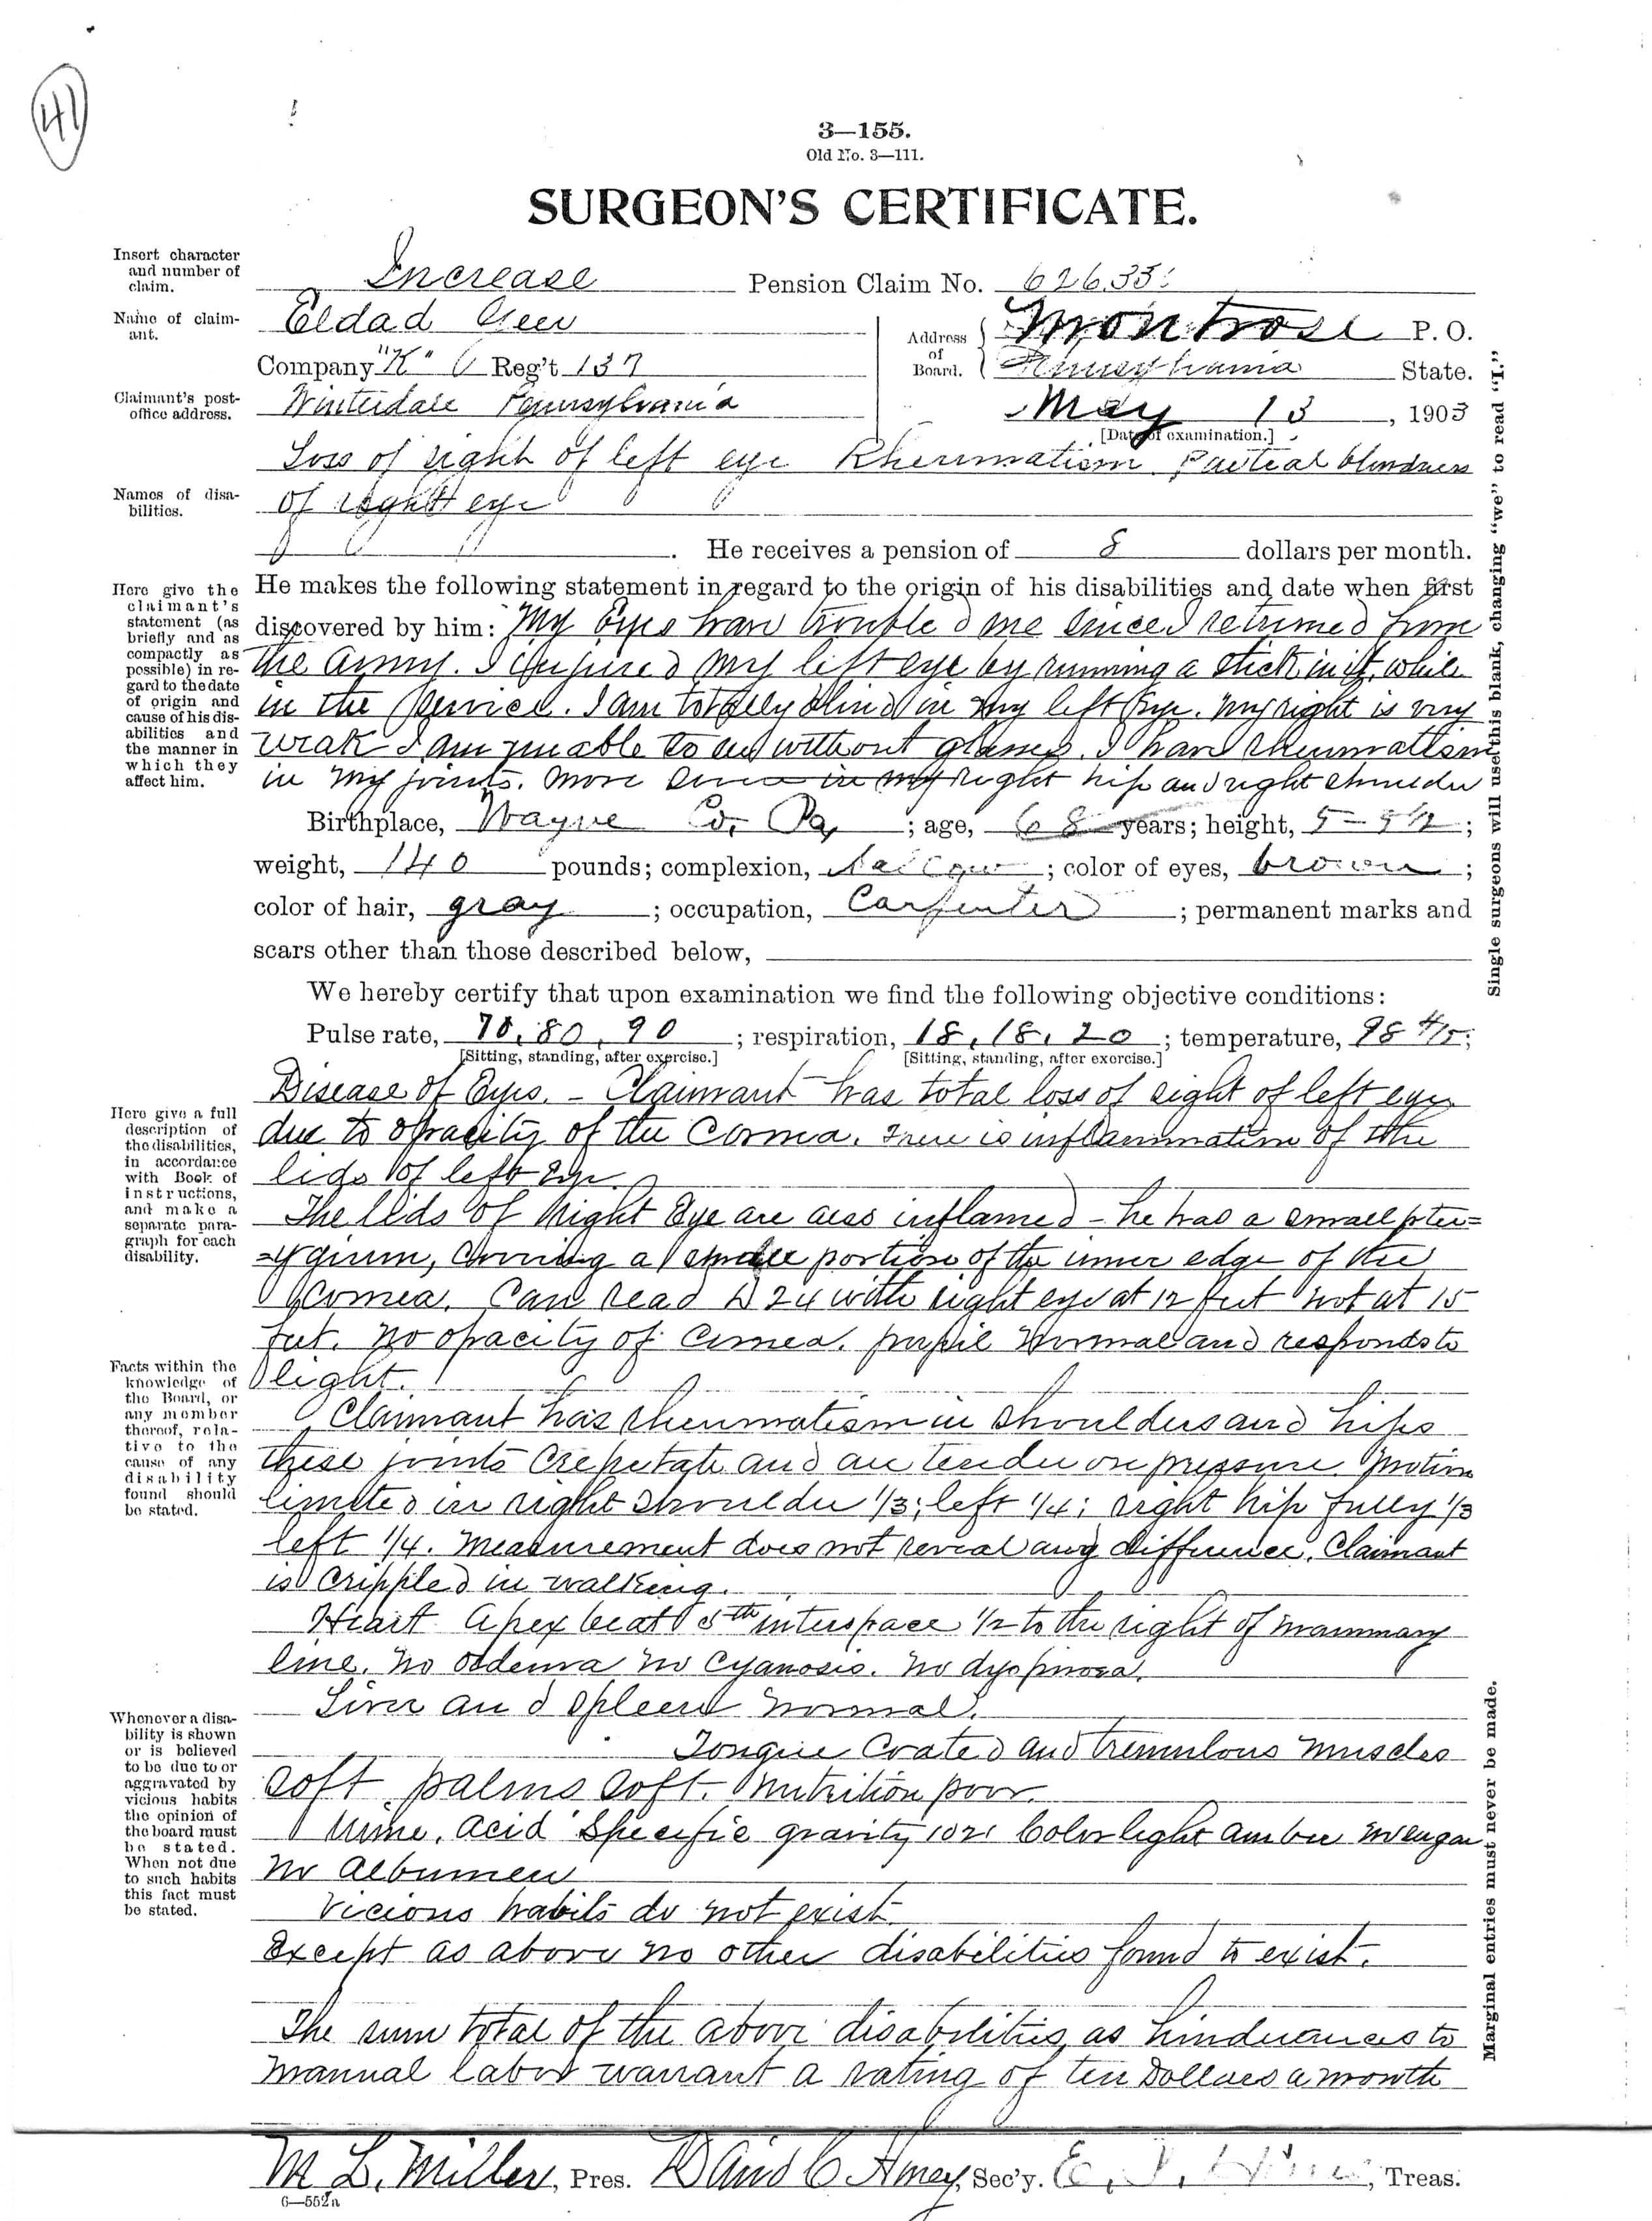 41
3—155.
Old No. 3—111.
SURGEON'S CERTIFICATE.
Insert character and number of claim.
Increase Pension Claim No. 626.33
Name of claimant.
Eldad
Address of Board. Montrose P. O.
Company "K" Reg't 137
Pennsylvania State.
Claimant's post-office address.
Winterdale Pennsylvania
May 13, 1903
[Date of examination.]
Names of disabilities.
Loss of sight of left eye Rheumatism Partial blindness
of right eye
He receives a pension of 8 dollars per month.
Here give the claimant's statement (as briefly and as compactly as possible) in regard to the date of origin and cause of his disabilities and the manner in which they affect him.
He makes the following statement in regard to the origin of his disabilities and date when first
discovered by him: My Eyes have troubled me since I returned from
the army. I injured my left eye by running a stick in it, while
in the service. I am totally blind in my left Eye. My right is very
weak I am unable to without glasses. I have rheumatism
in my joints. more in my right hip and right shoulder
Birthplace, Wayne Co. Pa; age, 68 years; height, 5-
weight, 140 pounds; complexion, ; color of eyes, brown;
color of hair, gray; occupation, Carpenter; permanent marks and
scars other than those described below,
We hereby certify that upon examination we find the following objective conditions:
Pulse rate, 70, 80, 90; respiration, 18, 18, 20; temperature, 98 4/5;
[Sitting, standing, after exercise.] [Sitting, standing, after exercise.]
Here give a full description of the disabilities, in accordance with Book of instructions, and make a separate paragraph for each disability.
Disease of Eyes. - Claimant has total loss of sight of left eye
due to opacity of the Cornea. There is inflammation of the
lids of left Eye.
The lids of Right Eye are also inflamed - he has a small pter=
=ygium, covering a small portion of the inner edge of the
Cornea. Can read D 24 with right eye at 12 feet not at 15
feet. No opacity of Cornea. pupil normal and responds to
light.
Facts within the knowledge of the Board, or any member thereof, relative to the cause of any disability found should be stated.
Claimant has rheumatism in shoulders and hips
these joints Crepitate and are tender on pressure. Motion
limited in right shoulder 1/3; left 1/4; right hip fully 1/3
left 1/4. Measurement does not reveal any difference. Claimant
is crippled in walking.
Heart Apex beat 5th interspace 1/2 to the right of mammary
line. No oedema No Cyanosis. No dyspnoea.
Liver and spleen normal.
Whenever a disability is shown or is believed to be due to or aggravated by vicious habits the opinion of the board must be stated. When not due to such habits this fact must be stated.
Tongue Coated and tremulous muscles
soft palms soft. Nutrition poor.
Urine. acid Specific gravity 1021 Color light amber no sugar
no albumen
Vicious habits do not exist.
Except as above no other disabilities found to exist.
The sum total of the above disabilities as hinderances to
manual labor warrant a rating of ten Dollars a month
M L. Miller, Pres. David C Amey, Sec'y. E. , Treas.
6—552a
Single surgeons will use this blank, changing "we" to read "I."
Marginal entries must never be made.